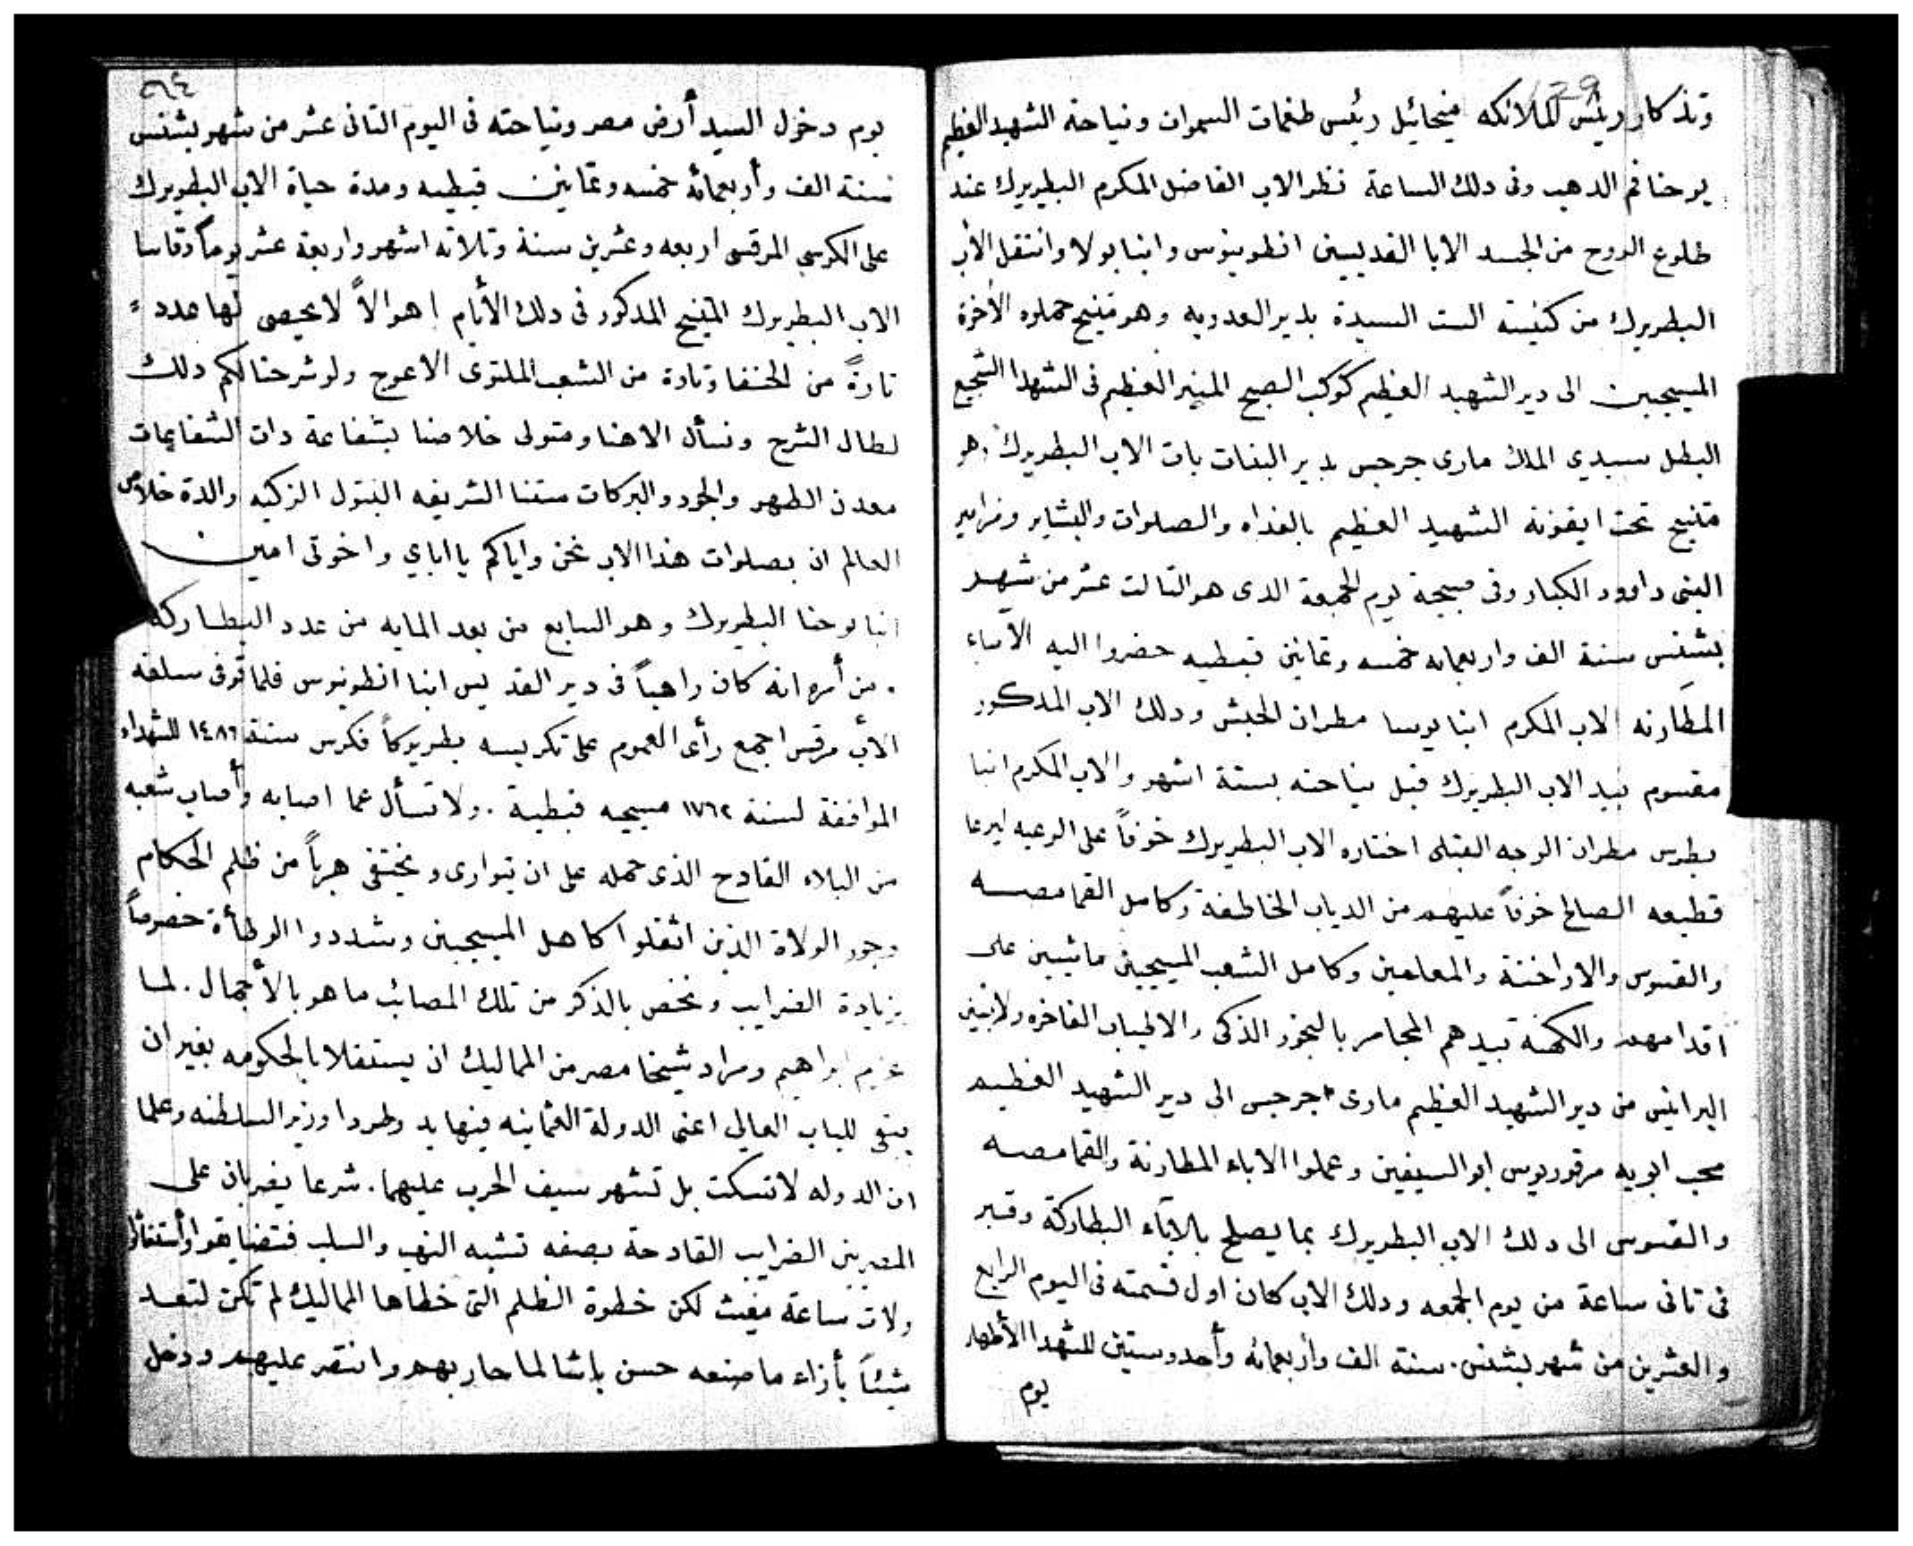 129
وتذكار رئيس الملائكه ميخائيل رئيس طغمات السموات ونياحة الشهيد العظيم
يوحنا فم الدهب وفى دلك الساعة نظر الاب الفاضل المكرم البطريرك عند
طلوع الروح من الجسد الابا القديسين انطونيوس وانبا بولا وانتقل الأب
البطريرك من كنيسة الست السيدة بدير العدويه وهو متنيح حملوه الأخوة
المسيحيين الى دير الشهيد العظيم كوكب الصبح المنير العظيم فى الشهدا الشجيع
البطل سيدي الملك مارى جرجس بدير البنات بات الاب البطريرك وهو
متنيح تحت ايقونة الشهيد العظيم بالغداه والصلوات والبشاير ومزامير
النبى داوود الكبار وفى صبيحة يوم الجمعة الدى هو التالت عشر من شهر
بشنس سنة الف واربعمايه خمسه وتمانين قبطيه حضروا اليه الآباء
المطارنه الاب المكرم انبا يوسا مطران الحبش ودلك الاب المدكور
مقسوم بيد الاب البطريرك قبل نياحته بستة اشهر والاب المكرم انبا
بطرس مطران الوجه القبلى اختاره الاب البطريرك خوفاً على الرعيه ليرعا
قطيعه الصالح خوفاً عليهم من الدياب الخاطفة وكامل القمامصه
والقسوس والاراخنة والمعلمين وكامل الشعب المسيحيين ماشيين على
اقدامهم والكهنة بيدهم المجامر بالبخور الذكى والاطياب الفاخره ولابسين
البرانيس من دير الشهيد العظيم مارى جرجس الى دير الشهيد العظيم
محب ابويه مرقوريوس ابو السيفين وعملوا الاباء المطارنة والقمامصه
والقسوس الى دلك الاب البطريرك بما يصلح بالاباء البطاركة وقبر
فى تانى ساعة من يوم الجمعه ودلك الاب كان اول قسمته فى اليوم الرابع
والعشرين من شهر بشنس. سنة الف واربعمائه وأحد وستين للشهدا الأطهار
يوم
يوم دخول السيد أرض مصر ونياحته فى اليوم التانى عشر من شهر بشنس
سنة الف وأربعمائه خمسه وتمانين قبطيه ومدة حياة الاب البطريرك
على الكرسى المرقسى اربعه وعشرين سنة وتلاته اشهر واربعة عشر يوماً وقاسا
الاب البطريرك المتنيح المدكور فى دلك الأيام اهوالاً لا يحصى لها عدد
تارةً من الحنفا وتارة من الشعب الملتوى الاعوج ولو شرحنا لكم دلك
لطال الشرح ونسأل الاهنا ومتولى خلاصنا بشفاعة دات الشفاعات
معدن الطهر والجود والبركات ستنا الشريفه البتول الزكيه والدة خلاص
العالم ان بصلوات هذا الاب نحن واياكم يا اباي واخوتى امين
انبا يوحنا البطريرك وهو السابع من بعد المايه من عدد البطاركه
من أمره انه كان راهباً فى دير القديس انبا انطونيوس فلما توفى سلفه
الأب مرقس اجمع رأى العموم على تكريسه بطريركاً فكرس سنة ١٤٨٦ للشهداء
الموافقة لسنة ١٧٦٢ مسيحيه قبطية. ولا تسأل عما اصابه وأصاب شعبه
من البلاء الفادح الذى حمله على ان يتوارى ويختفى هرباً من ظلم الحكام
وجور الولاة الذين اثقلوا كاهل المسيحيين وشددوا الوطأة خصوصاً
بزيادة الضرايب ونخص بالذكر من تلك المصائب ما هو بالأجمال. لما
عزم ابراهيم ومراد شيخا مصر من المماليك ان يستقلا بالحكومه بغير ان
يبقى للباب العالي اعنى الدولة العثمانيه فيها يد وطردوا وزير السلطنه وعلما
ان الدوله لا تسكت بل تشهر سيف الحرب عليهما. شرعا يضربان على
المصريين الضرايب الفادحة بصفه تشبه النهب والسلب فتضايقوا وأستغاثوا
ولات ساعة مغيث لكن خطوة الظلم التى خطاها المماليك لم تكن لتعد
شيئاً بأزاء ما صنعه حسن باشا لما حاربهم وانتصر عليهم ودخل